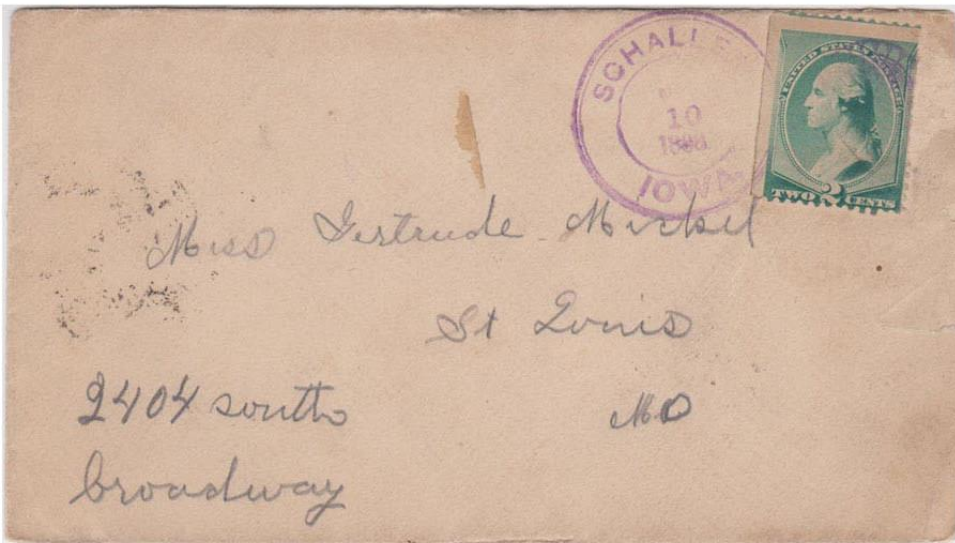 SCHALLE
10
1888
IOWA.
UNITED STATES POSTAGE
TWO 2 CENTS
Miss Gertrude Mickel
St Louis
2404 south
MO
broadway